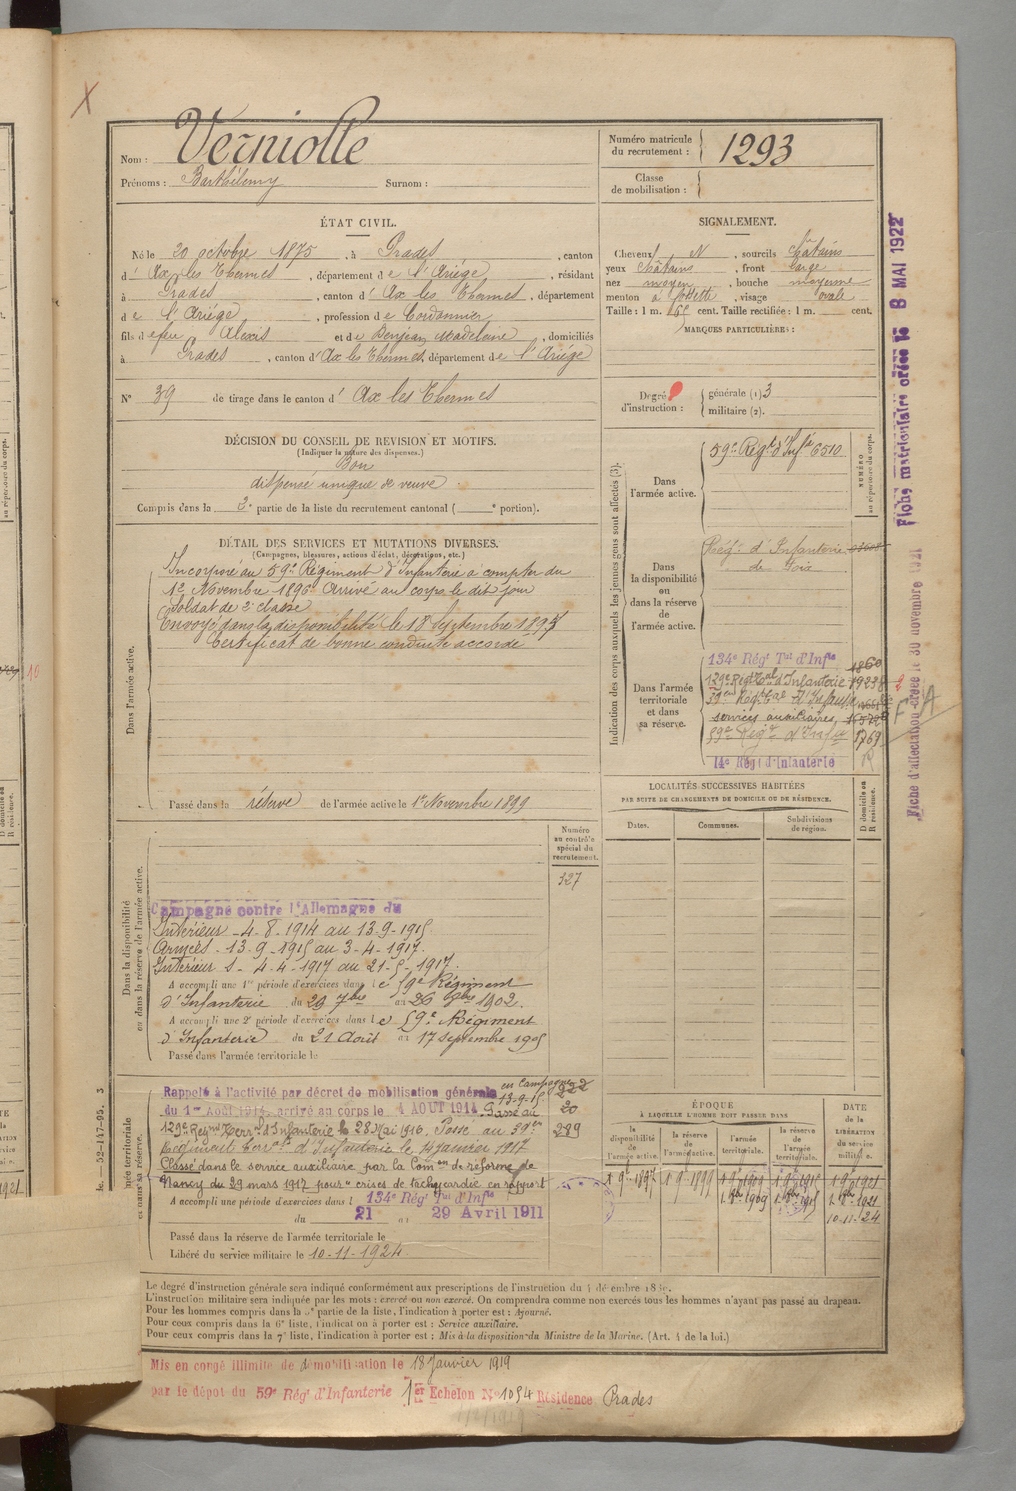 X
Nom : Verniolle
Prénoms : Barthélemy Surnom :
Numéro matricule du recrutement : 1293
Classe de mobilisation :
ÉTAT CIVIL.
Né le 20 octobre 1875, à Prades, canton
d'Ax les Thermes, département de l'Ariége, résidant
à Prades, canton d'Ax les Thermes, département
de l'Ariége, profession de Cordonnier
fils de feu Alexis et de Benjean Madeleine, domiciliés
à Prades, canton d'Ax les Thermes, département de l'Ariége
N° 39 de tirage dans le canton d'Ax les Thermes
SIGNALEMENT.
Cheveux N, sourcils châtains
yeux châtains, front large
nez moyen, bouche moyenne
menton à fossette, visage ovale
Taille : 1 m. cent. Taille rectifiée : 1 m. cent.
MARQUES PARTICULIÈRES :
Degré d'instruction : générale (1) 3
militaire (2).
DÉCISION DU CONSEIL DE REVISION ET MOTIFS.
(Indiquer la nature des dispenses.)
Bon
dispensé unique de veuve
Compris dans la 2e partie de la liste du recrutement cantonal ( e portion).
DÉTAIL DES SERVICES ET MUTATIONS DIVERSES.
(Campagnes, blessures, actions d'éclat, décorations, etc.)
Dans l'armée active.
Incorporé au 59e Régiment d'Infanterie à compter du
1er Novembre 1896 Arrivé au corps le dit jour
Soldat de 2e classe
Envoyé dans la disponibilité le 18 septembre 1897
Certificat de bonne conduite accordé
Passé dans la réserve de l'armée active le 1er Novembre 1899
Indication des corps auxquels les jeunes gens sont affectés (3).
NUMÉRO au répertoire du corps.
Dans l'armée active.
59e Régt d'Infie 6510
Dans la disponibilité ou dans la réserve de l'armée active.
Régt d'Infanterie
de Foix
Dans l'armée territoriale et dans sa réserve.
134e Régt Tal d'Infie 1860
129e Régt Tal d'Infanterie
39e Régt d'Infanterie
services auxiliaires
59e Régt d'Infie 1769
14e Régt d'Infanterie R
F A
LOCALITÉS SUCCESSIVES HABITÉES
PAR SUITE DE CHANGEMENTS DE DOMICILE OU DE RÉSIDENCE.
Dates. Communes. Subdivisions de région. D domicile ou R résidence.
Dans la disponibilité ou dans la réserve de l'armée active.
Numéro au contrôle spécial du recrutement.
327
Campagne contre l'Allemagne du
Intérieur - 4-8-1914 au 13-9-1915
Armées - 13-9-1915 au 3-4-1917.
Intérieur S - 4-4-1917 au 21-5-1917.
A accompli une 1re période d'exercices dans le 59e Régiment
d'Infanterie du 29 7bre au 26 8bre 1902.
A accompli une 2e période d'exercices dans le 59e Régiment
d'Infanterie du 21 Août au 17 septembre 1905
Passé dans l'armée territoriale le
territoriale et dans sa réserve.
Rappelé à l'activité par décret de mobilisation générale en Campagne 222
du 1er Août 1914, arrivé au corps le 4 AOUT 1914. 13-9-15 Passé au 20
129e Régnt Terral d'Infanterie le 28 Mai 1916, Passé au 39em 289
Régiment Terral d'Infanterie le 14 janvier 1917
Classé dans le service auxiliaire par la Comon de réforme de
Nancy du 29 mars 1917 pour "crises de tachycardie en rapport
A accompli une période d'exercices dans l 134e Régt Tal d'Infie
du 21 au 29 Avril 1911
Passé dans la réserve de l'armée territoriale le
Libéré du service militaire le 10-11-1924
ÉPOQUE
À LAQUELLE L'HOMME DOIT PASSER DANS
la disponibilité de l'armée active. la réserve de l'armée active. l'armée territoriale. la réserve de l'armée territoriale. DATE de la LIBÉRATION du service militaire.
1 9bre 1897 1 9bre 1899 1 9bre 1909 1 9bre 1915 1 9bre 1921
1 8bre 1909 1 8bre 1915 1 8bre 1921
10-11-24
Le degré d'instruction générale sera indiqué conformément aux prescriptions de l'instruction du 4 décembre 1889.
L'instruction militaire sera indiquée par les mots : exercé ou non exercé. On comprendra comme non exercés tous les hommes n'ayant pas passé au drapeau.
Pour les hommes compris dans la 5e partie de la liste, l'indication à porter est : Ajourné.
Pour ceux compris dans la 6e liste, l'indication à porter est : Service auxiliaire.
Pour ceux compris dans la 7e liste, l'indication à porter est : Mis à la disposition du Ministre de la Marine. (Art. 4 de la loi.)
Mis en congé illimité de démobilisation le 18 Janvier 1919
par le dépôt du 59e Régt d'Infanterie 1er Echelon N° 1054 Résidence Prades
Fiche matriculaire créée le 8 MAI 1922
Fiche d'affectation créée le 30 novembre 1921
52-147-95. 3